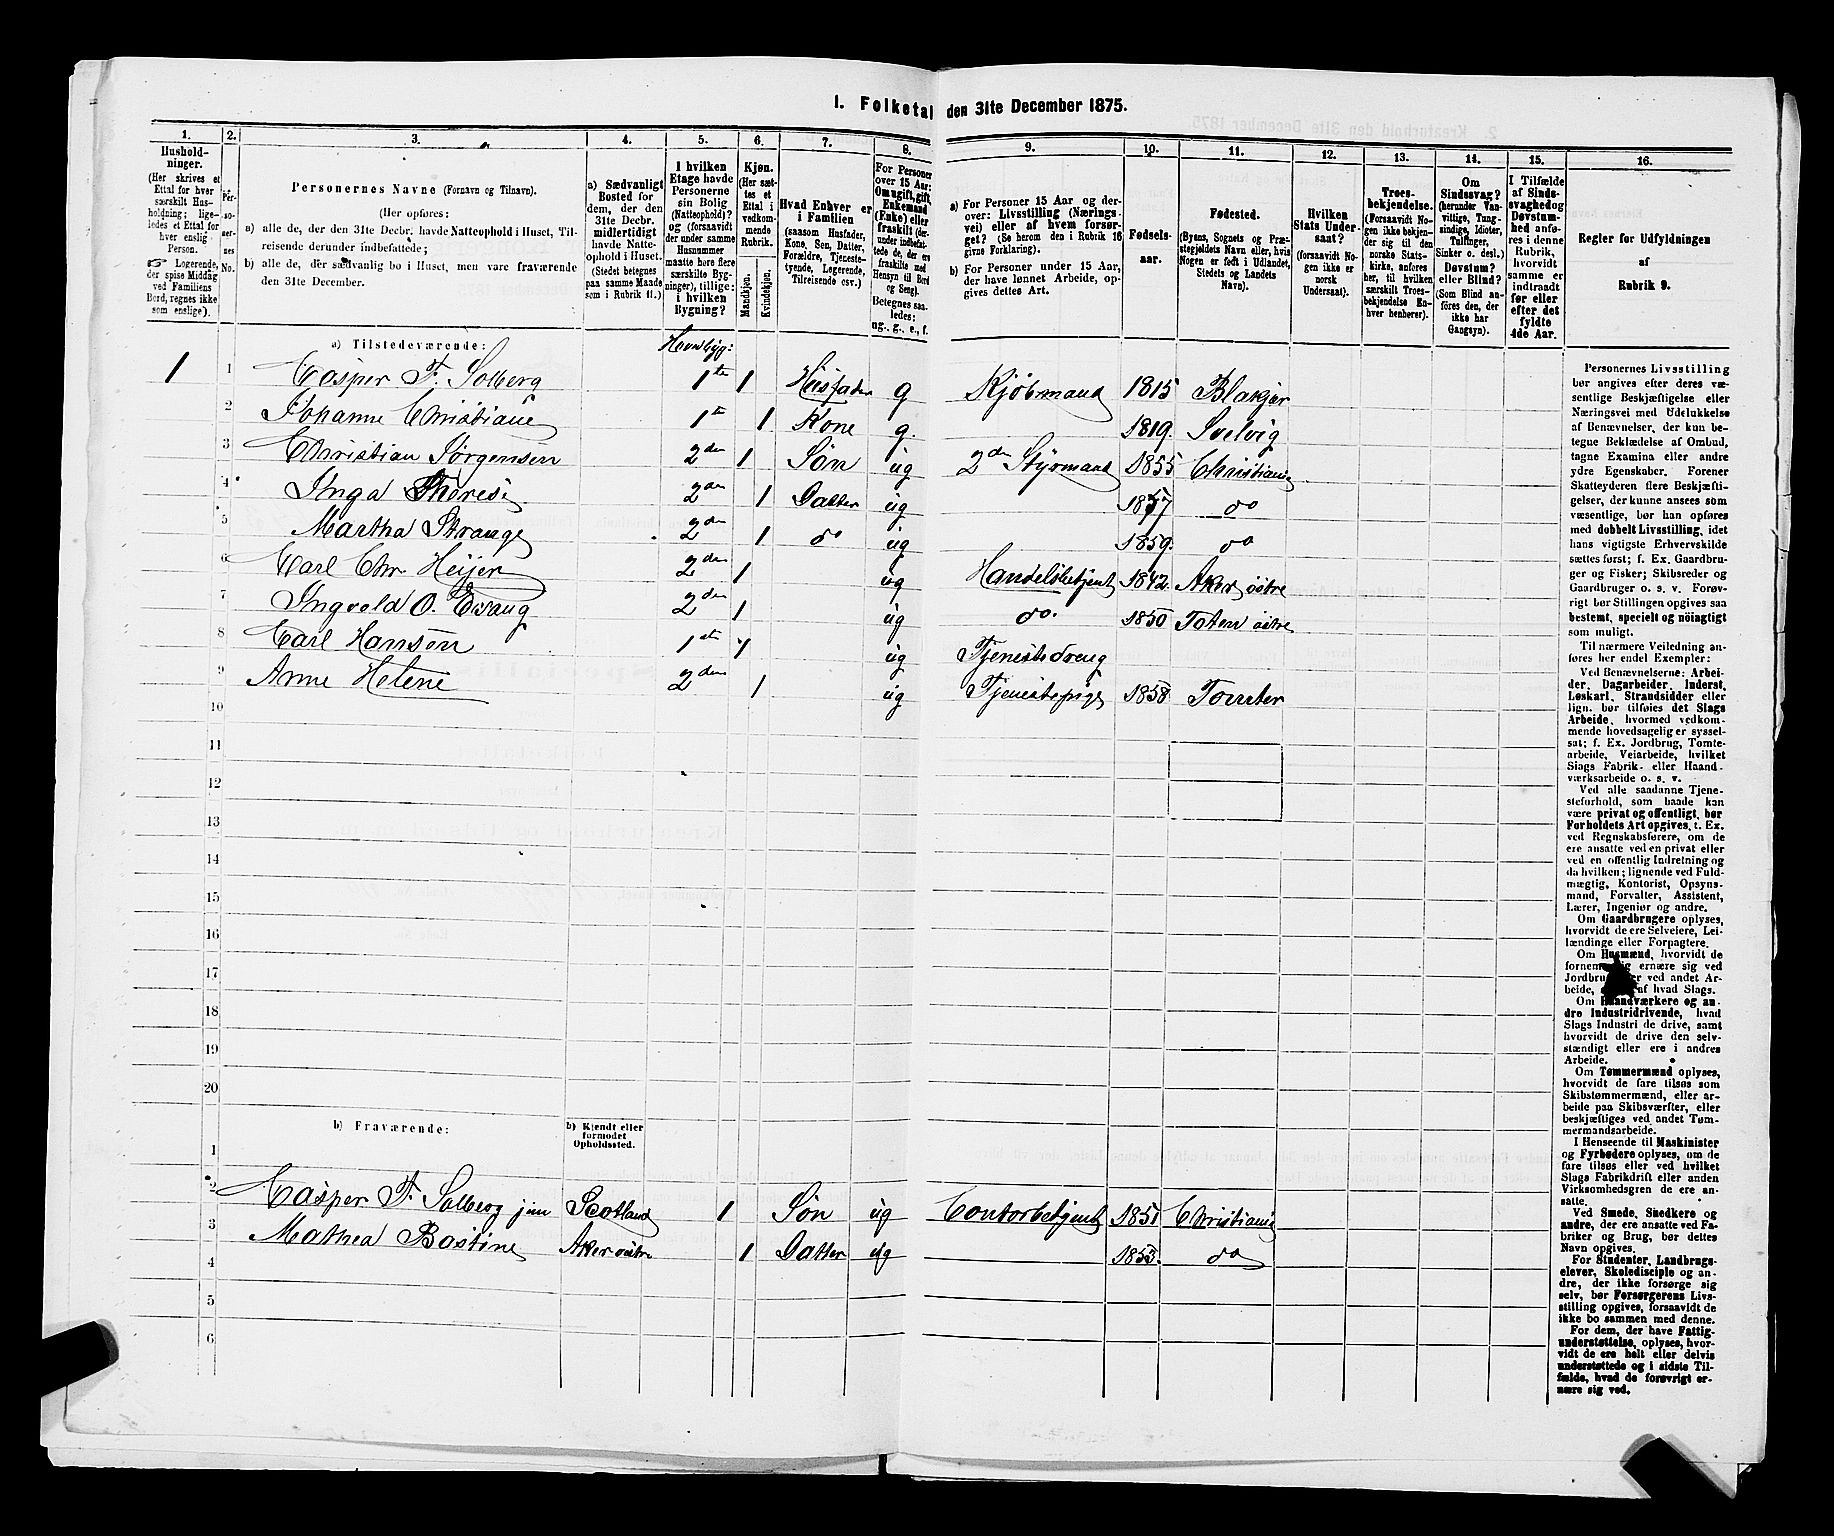 I. Folketal den 31te December 1875.
1. 2. 3. 4. 5. 6. 7. 8. 9. 10. 11. 12. 13. 14. 15. 16.
Husholdninger.
(Her skrives et Ettal for hver særskilt Husholdning; ligeledes et Ettal for hver enslig Person.
☞ Logerende, der spise Middag ved Familiens Bord, regnes ikke som enslige).
Personernes No.
Personernes Navne (Fornavn og Tilnavn).
(Her opføres:
a) alle de, der den 31te Decbr. havde Natteophold i Huset, Tilreisende derunder indbefattede;
b) alle de, der sædvanlig bo i Huset, men vare fraværende den 31te December.
a) Sædvanligt Bosted for dem, der den 31te Decbr. midlertidigt havde Natteophold i Huset.
(Stedet betegnes paa samme Maade som i Rubrik 11.)
I hvilken Etage havde Personerne sin Bolig (Natteophold)? og (forsaavidt der under samme Husnummer maatte høre flere særskilte Bygninger), tillige: i hvilken Bygning?
Kjøn.
(Her sættes et Ettal i vedkommende Rubrik.
Mandkjøn. Kvindekjøn.
Hvad Enhver er i Familien
(saasom Husfader, Kone, Søn, Datter, Forældre, Tjenestetyende, Logerende, Tilreisende osv.)
For Personer over 15 Aar: Om ugift, gift, Enkemand (Enke) eller fraskilt (derunder indbefattede de, der ere fraskilte med Hensyn til Bord og Seng).
Betegnes saaledes: ug., g., e., f.
a) For Personer 15 Aar og derover: Livsstilling (Næringsvei) eller af hvem forsørget? (Se herom den i Rubrik 16 givne Forklaring).
b) For Personer under 15 Aar, der have lønnet Arbeide, opgives dettes Art.
Fødselsaar.
Fødested.
(Byens, Sognets og Præstegjeldets Navn eller, hvis Nogen er født i Udlandet, Stedets og Landets Navn).
Hvilken Stats Undersaat?
(forsaavidt Nogen ikke er norsk Undersaat).
Troesbekjendelse.
(Forsaavidt Nogen ikke bekjender sig til den norske Statskirke, anføres her, til hvilken særskilt Troesbekjendelse Enhver henhører).
Om Sindssvag? (herunder Vanvittige, Tungsindige, Idioter, Tullinger, Sinker o. desl.) Døvstum? eller Blind?
(Som Blind anføres den, der ikke har Gangsyn).
I Tilfælde af Sindssvaghed og Døvstumhed anføres i denne Rubrik, hvorvidt samme er indtraadt før eller efter det fyldte 4de Aar.
Regler for Udfyldningen af Rubrik 9.
a) Tilstedeværende: Hovedbyg:
1 1 Casper F. Solberg 1ste 1 Husfader g Kjøbmand 1815 Blakjer
2 Johanne Christiane 1ste 1 Kone g. 1819. Svelvig
3 Christian Jørgensen 2den 1 Søn ug 2den Styrmand 1855 Christiania
4 Inga Therese 2den 1 Datter ug 1857 do
5 Martha Strange 2den 1 do ug 1859. do
6 Carl Chr. Heijer 2den 1 ug Handelsbetjent 1842 Aker østre
7 Ingvald O. Evang 2den 1 ug do. 1850 Toten østre
8 Carl Hansen 1ste 1 ug Tjenestedreng
9 Anne Helene 2den 1 ug Tjenestepige 1858. Torreter
10
11
12
13
14
15
16
17
18
19
20
b) Fraværende: b) Kjendt eller formodet Opholdssted.
1
2 Casper F. Solberg jun Scotland 1 Søn ug Contorbetjent 1851 Christiania
3 Mathea Bastine Aker østre 1 Datter ug 1853. do
4
5
6
Personernes Livsstilling
bør angives efter deres væsentlige Beskjæftigelse eller
Næringsvei med Udelukkelse
af Benævnelser, der kun betegne Beklædelse af Ombud,
tagne Examina eller andre
ydre Egenskaber. Forener
Skatteyderen flere Beskjæftigelser, der kunne ansees som
væsentlige, bør han opføres
med dobbelt Livsstilling, idet
hans vigtigste Erhvervskilde
sættes først; f. Ex. Gaardbruger og Fisker; Skibsreder og
Gaardbruger o. s. v. Forøvrigt bør Stillingen opgives saa
bestemt, specielt og nøiagtigt
som muligt.
Til nærmere Veiledning anføres her endel Exempler:
Ved Benævnelserne: Arbeider, Dagarbeider, Inderst,
Løskarl, Strandsidder eller
lign. bør tilføies det Slags
Arbeide, hvormed vedkommende hovedsagelig er sysselsat; f. Ex. Jordbrug, Tomtearbeide, Veiarbeide, hvilket
Slags Fabrik- eller Haandværksarbeide o. s. v.
Ved alle saadanne Tjenesteforhold, som baade kan
være privat og offentligt, bør
Forholdets Art opgives, t. Ex.
ved Regnskabsførere, om de
ere ansatte ved en privat eller
ved en offentlig Indretning og
da hvilken; lignende ved Fuldmægtig, Kontorist, Opsynsmand, Forvalter, Assistent,
Lærer, Ingeniør og andre.
Om Gaardbrugere oplyses,
hvorvidt de ere Selveiere, Leilændinge eller Forpagtere.
Om Husmænd, hvorvidt de
ernære sig ved
ved andet Arbeide, af hvad Slags.
Om Haandværkere og andre Industridrivende, hvad
Slags Industri de drive, samt
hvorvidt de drive den selvstændigt eller ere i andres
Arbeide.
Om Tømmermænd oplyses,
hvorvidt de fare tilsøs som
Skibstømmermænd, eller arbeide paa Skibsværfter, eller
beskjæftiges ved andet Tømmermandsarbeide.
I Henseende til Maskinister
og Fyrbødere oplyses, om de
fare tilsøs eller ved hvilket
Slags Fabrikdrift eller anden
Virksomhedsgren de ere ansatte.
Ved Smede, Snedkere og
andre, der ere ansatte ved Fabriker og Brug, bør dettes
Navn opgives.
For Studenter, Landbrugselever, Skoledisciple og andre, der ikke forsørge sig
selv, bør Forsørgerens Livsstilling opgives, forsaavidt de
ikke bo sammen med denne.
For dem, der have Fattigunderstøttelse, oplyses, hvorvidt de ere helt eller delvis
understøttede og i sidste Tilfælde, hvad de forøvrigt ernære sig ved.